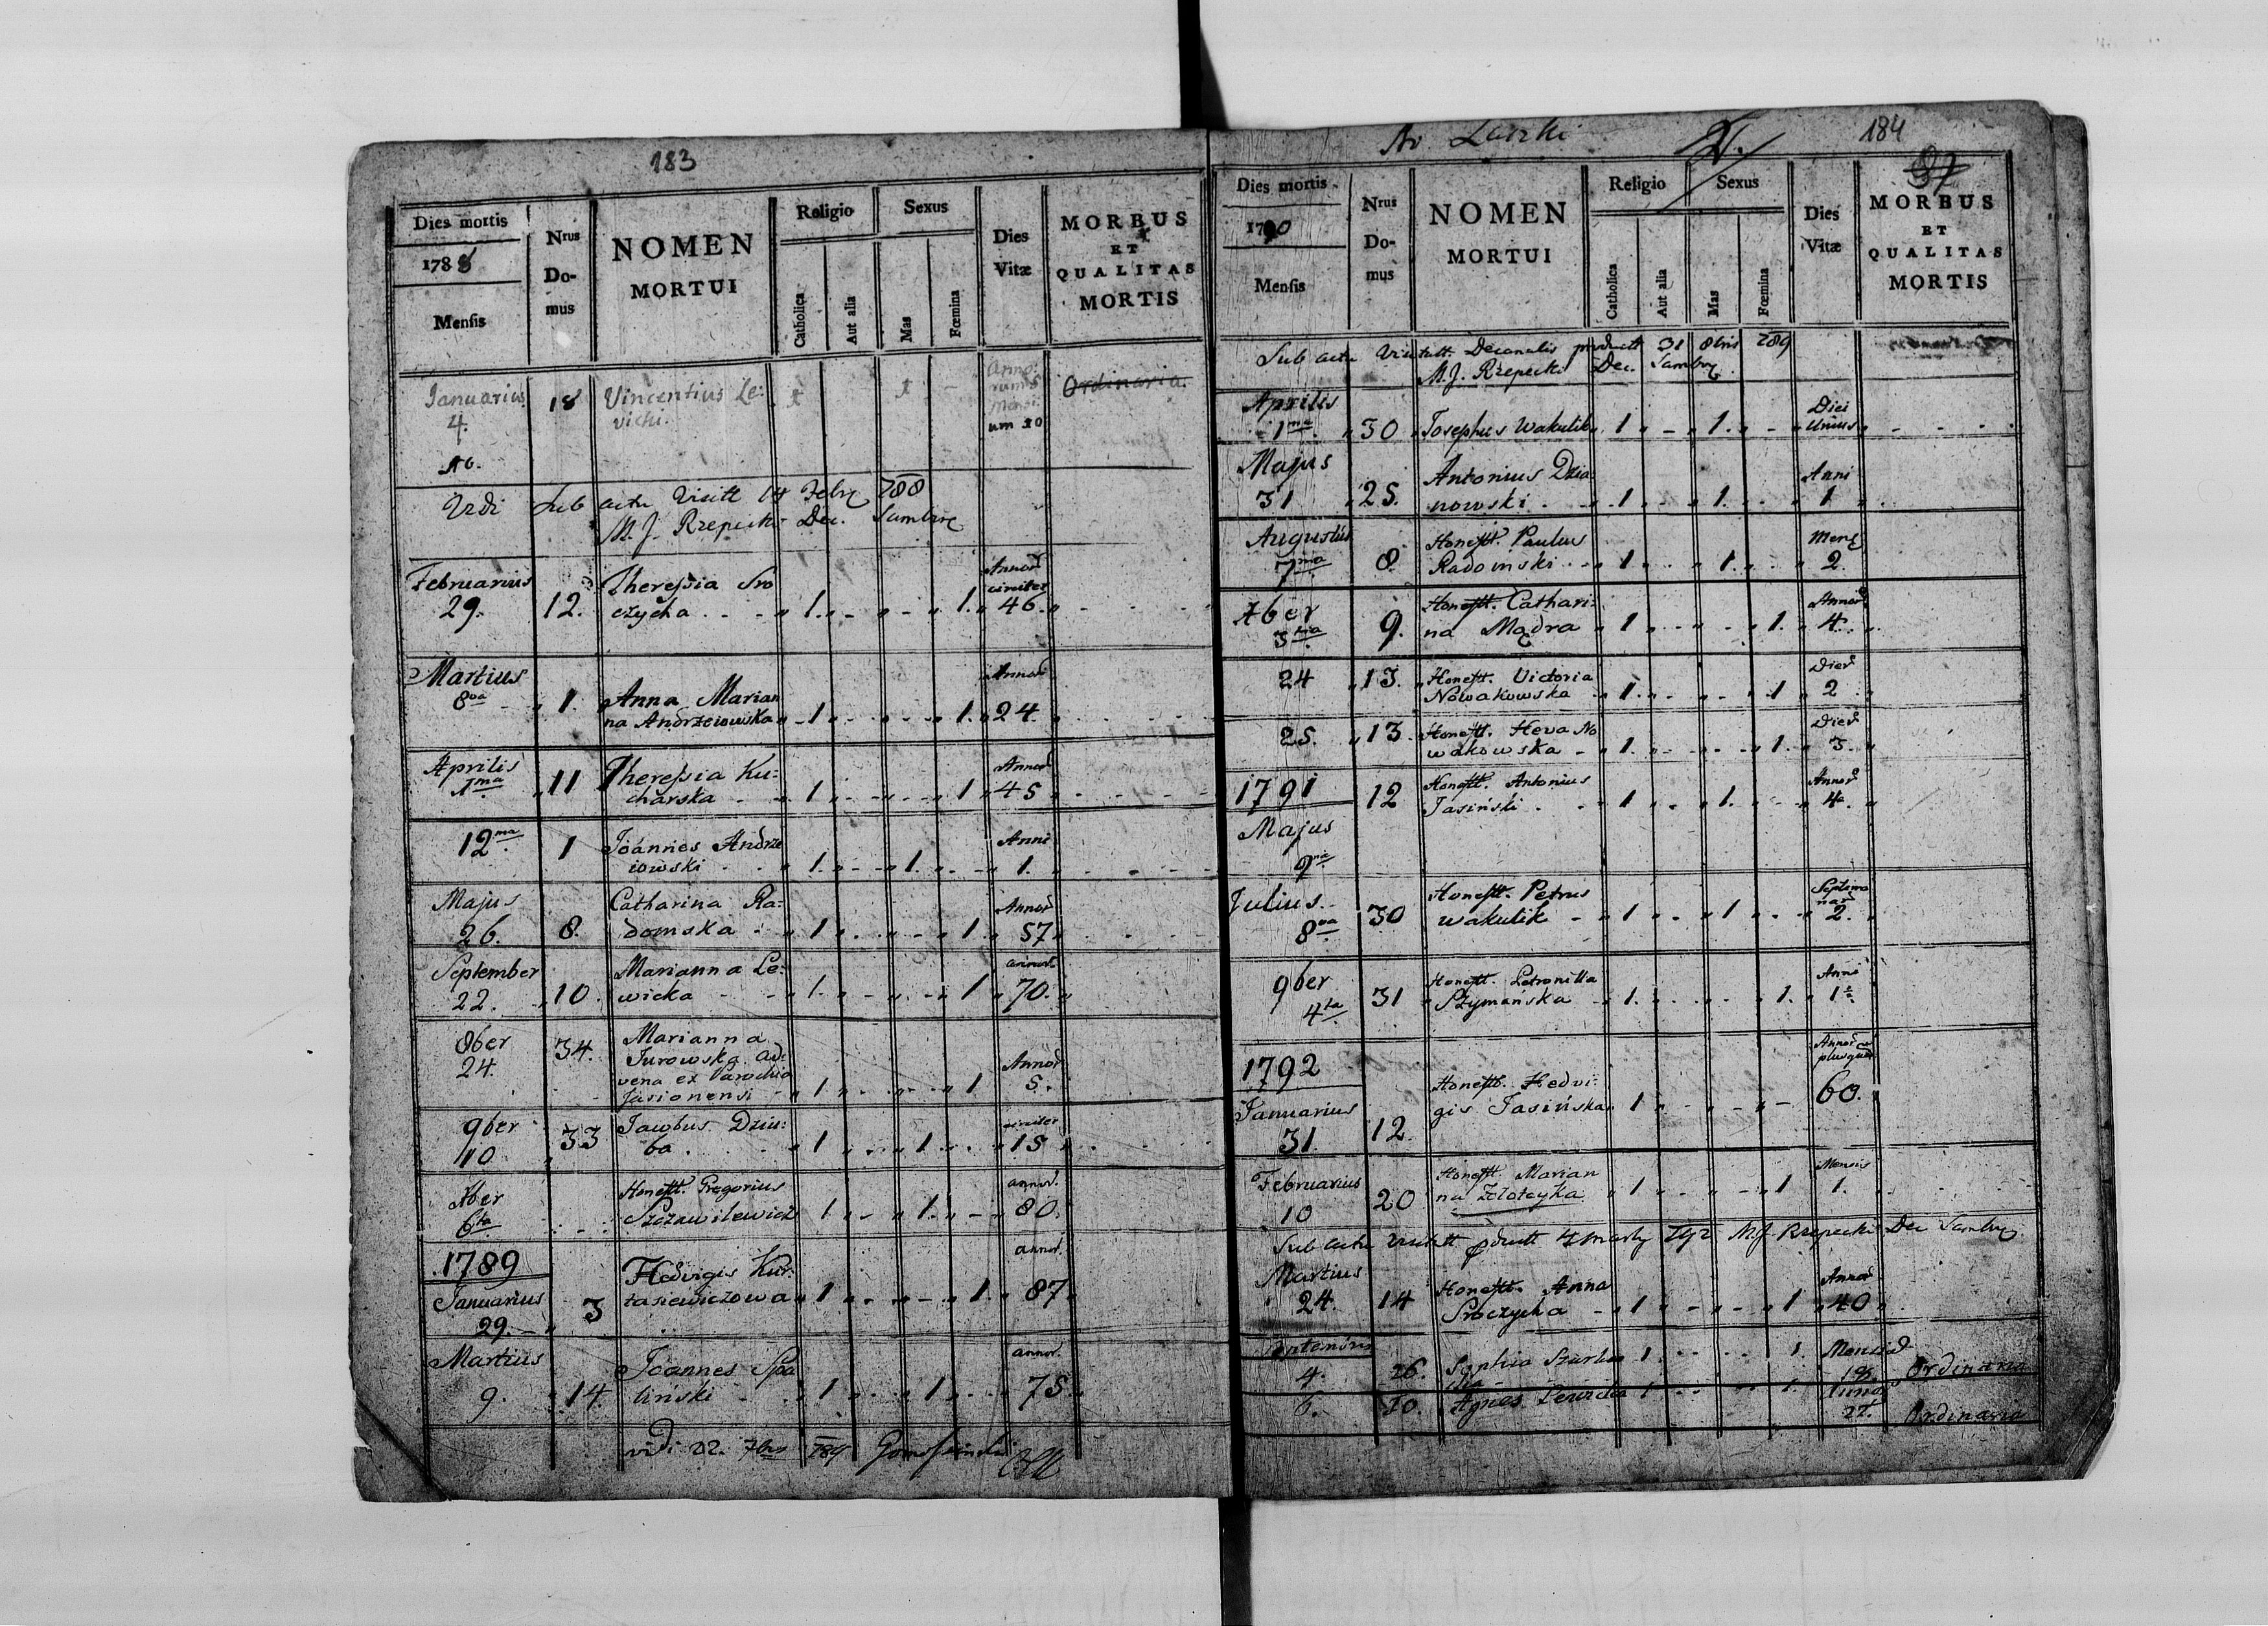 183
Dies mortis
1788
Mensis
Nrus
Do-
mus
NOMEN
MORTUI
Religio
Catholica
Aut alia
Sexus
Mas
Fœmina
Dies
Vitæ
MORBUS
ET
QUALITAS
MORTIS
Januarius 4. 18 Vincentius Le:
vichi. 1 1 – Anno:
rum 5
Mensi:
um 10 Ordinaria.
Vidi Sub actu Visitt 14 Febr 788
M. J. Rzepecki Dec. Sambor
Februarius
29. 12. Theressia Sro
czycha 1. 1. Annor
circiter
46.
Martius
8va 1. Anna Marian
na Andrzeiowska 1 1. Annor
24
Aprilis
1ma 11 Theressia Ku:
charska 1 1 Annor
45
12ma 1 Joannes Andrze
iowski 1. 1. Anni
1.
Majus
26. 8. Catharina Ra:
domska 1 1 Annor
57
September
22. 10. Marianna Le:
wicka 1. 1 annor.
70.
8ber
24. 34. Marianna
Jurowska ad:
vena ex Parochia
Jasionensi 1 1 Annor
5.
9ber
10 33 Jacobus Dziu:
ba. 1 1 circiter
15
Xber
6ta Honestt. Gregorius
Szczawilewicz 1 1. annor.
80.
1789
Januarius
29. 3 Hedvigis Kur:
tasiewiczowa 1 1. annor.
87
Martius
9. 14. Joannes Spa
linski 1 1 annor.
75.
vidi 22. 7bris 789
184
Laszki
97
Dies mortis
1790
Mensis
Nrus
Do-
mus
NOMEN
MORTUI
Religio
Catholica
Aut alia
Sexus
Mas
Fœmina
Dies
Vitæ
MORBUS
ET
QUALITAS
MORTIS
Sub actu Visitatt. Decanalis 31 8bris 789
M. J. Rzepecki Dec. Sambor
Aprilis
1ma 30 Josephus Wakulik 1 1. Diei
Unius
Majus
31 25. Antonius Dzia
nowski 1 1. Anni
1
Augustus
7ma 8. Honestt. Paulus
Radomski 1 1. Mens
2.
Xber
3tia 9. Honestt. Cathari:
na Mądra 1 1. Annor
4.
24 13. Honestt. Victoria
Nowakowska 1 1 Dier
2
25. 13. Honestt. Heva No
wakowska 1. 1. Dier
3.
1791
Majus
9na 12 Honestt. Antonius
Jasiński 1 1. Annor
4.
Julius
8va 30 Honestt. Petrus
Wakulik 1 1 Septima
nar
2.
9ber
4ta 31 Honestt. Petronilla
Szymańska 1. 1. Anni
1
1792
Januarius
31. 12. Honestt. Hedvi:
gis Jasińska 1 Annor
plusquam
60.
Februarius
10 20 Honestt. Marian
na Złotcyka 1 1 Mensis
1.
Sub actu Visitatt 792 M. J. Rzepecki Dec Sambor
Martius
24. 14 Honestt. Anna
Sroczycha 1 1 Annor
40
Septembris
4. 26. Sophia 1 1. Mensiū
18. Ordinaria
6. 10. Agnes Lewicka 1 1. 22. Ordinaria